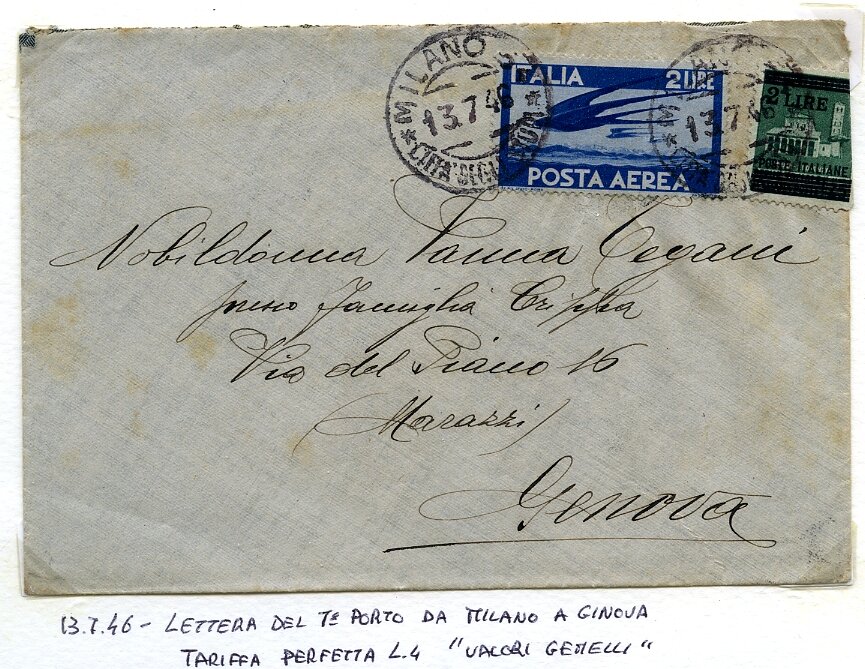 MILANO
13.7.46
ITALIA 2 LIRE
POSTA AEREA
13.7.46
2 LIRE
POSTE ITALIANE
Nobildonna Vanna Cegani
presso famiglia Crippa
Via del Piano 16
(Marazzi)
Genova
13.7.46 - LETTERA DEL Iº PORTO DA MILANO A GINOVA
TARIFFA PERFETTA L.4 "VALORI GEMELLI"